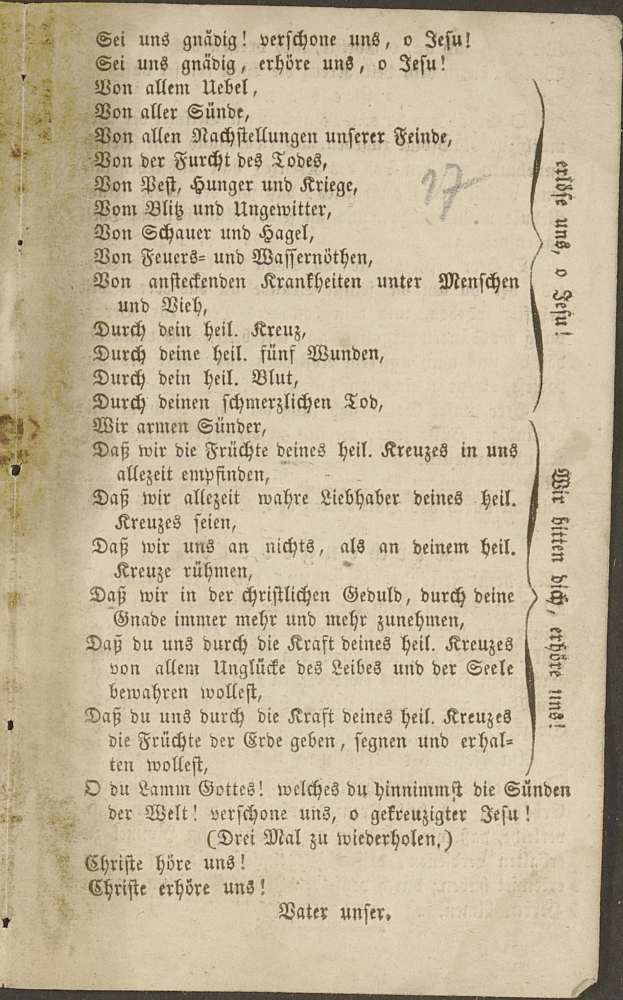 Sei uns gnädig! verschone uns, o Jesu!
Sei uns gnädig, erhöre uns, o Jesu!
Von allem Uebel,
Von aller Sünde,
Von allen Nachstellungen unserer Feinde,
Von der Furcht des Todes,
Von Pest, Hunger und Kriege,
Vom Blitz und Ungewitter,
Von Schauer und Hagel,
Von Feuers- und Wassernöthen,
Von ansteckenden Krankheiten unter Menschen
und Vieh,
Durch dein heil. Kreuz,
Durch deine heil. fünf Wunden,
Durch dein heil. Blut,
Durch deinen schmerzlichen Tod,
erlöse uns, o Jesu!
17
Wir armen Sünder,
Daß wir die Früchte deines heil. Kreuzes in uns
allezeit empfinden,
Daß wir allezeit wahre Liebhaber deines heil.
Kreuzes seien,
Daß wir uns an nichts, als an deinem heil.
Kreuze rühmen,
Daß wir in der christlichen Geduld, durch deine
Gnade immer mehr und mehr zunehmen,
Daß du uns durch die Kraft deines heil. Kreuzes
von allem Unglücke des Leibes und der Seele
bewahren wollest,
Daß du uns durch die Kraft deines heil. Kreuzes
die Früchte der Erde geben, segnen und erhal-
ten wollest,
Wir bitten dich, erhöre uns!
O du Lamm Gottes! welches du hinnimmst die Sünden
der Welt! verschone uns, o gekreuzigter Jesu!
(Drei Mal zu wiederholen.)
Christe höre uns!
Christe erhöre uns!
Vater unser.